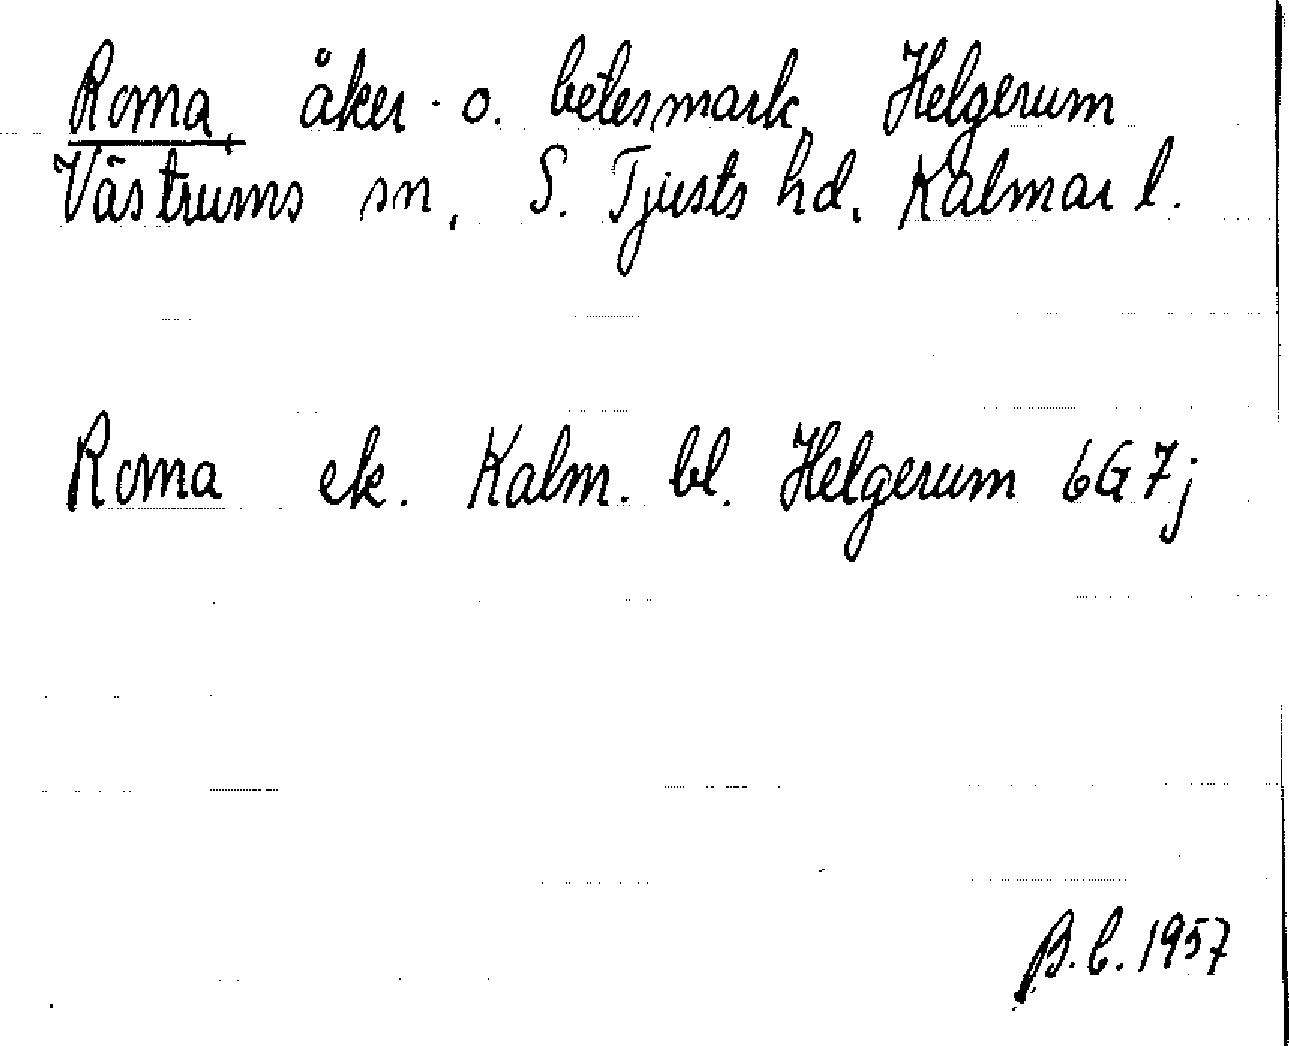 Roma, åker- o. betesmark, Helgerum
Västrums sn, S. Tjusts hd, Kalmar l.
Roma ek. Kalm. bl. Helgerum 6G7j
B.b. 1957